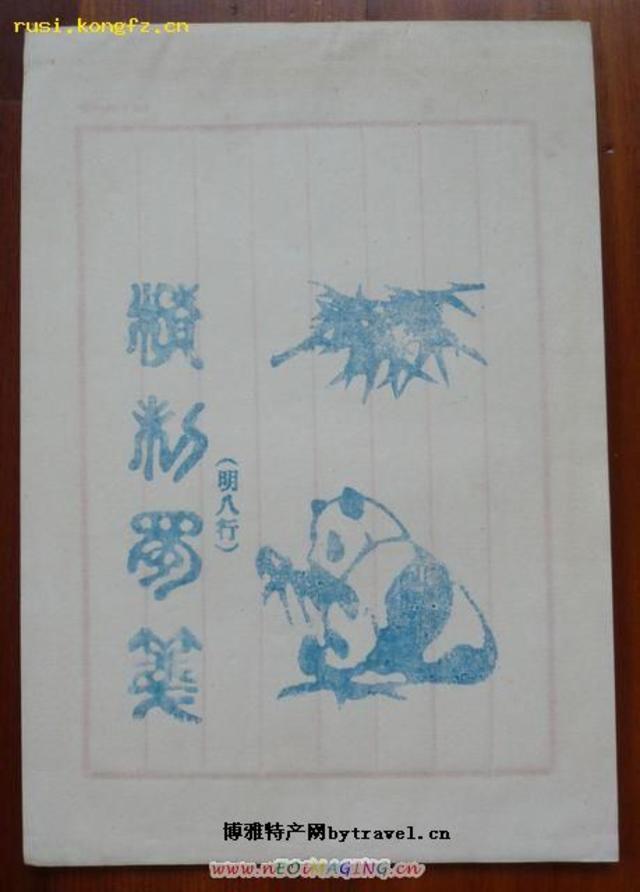 rusi.kongfz.cn
精制蜀笺
(明八行)
博雅特产网bytravel.cn
www.nEOiMAGING.cn